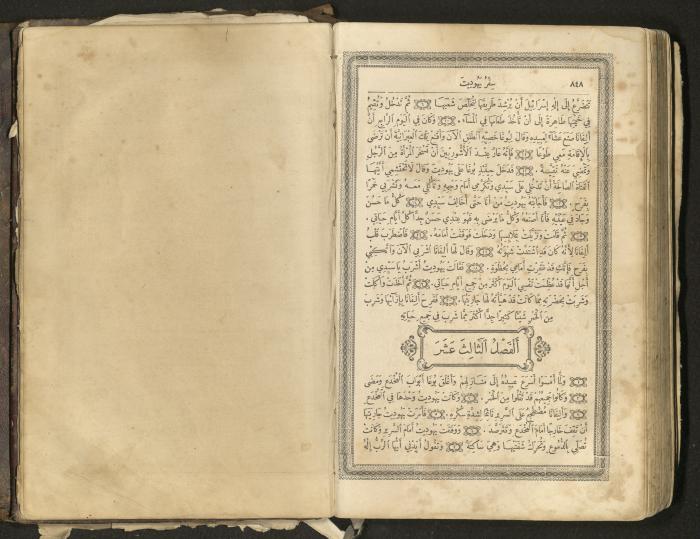 ٨٤٨
سِفْرُ يَهُودِيتَ
تَتَضَرَّعُ إِلَى إِلٰهِ إِسْرَائِيلَ أَنْ يُرْشِدَ طَرِيقَهَا لِتُخَلِّصَ شَعْبَهَا ثُمَّ تَدْخُلُ وَتُقِيمُ
فِي خَيْمَتِهَا طَاهِرَةً إِلَى أَنْ تَأْخُذَ طَعَامَهَا فِي الْمَسَاءِ. وَكَانَ فِي الْيَوْمِ الرَّابِعِ أَنَّ
أَلِيفَانَا صَنَعَ عَشَاءً لِعَبِيدِهِ وَقَالَ لِبُوغَا خَصِيِّهِ انْطَلِقِ الْآنَ وَأَقْنِعْ تِلْكَ الْعِبْرَانِيَّةَ أَنْ تَرْضَى
بِالْإِقَامَةِ مَعِي طَوْعًا فَإِنَّهُ عَارٌ عِنْدَ الْأَشُّورِيِّينَ أَنْ تَسْخَرَ الْمَرْأَةُ مِنَ الرَّجُلِ
وَتَمْضِيَ عَنْهُ نَقِيَّةً. فَدَخَلَ حِينَئِذٍ بُوغَا عَلَى يَهُودِيتَ وَقَالَ لَا تَحْتَشِمِي أَيَّتُهَا
الْفَتَاةُ الصَّالِحَةُ أَنْ تَدْخُلِي عَلَى سَيِّدِي وَتُكَرَّمِي أَمَامَ وَجْهِهِ وَتَأْكُلِي مَعَهُ وَتَشْرَبِي خَمْرًا
بِفَرَحٍ. فَأَجَابَتْهُ يَهُودِيتُ مَنْ أَنَا حَتَّى أُخَالِفَ سَيِّدِي كُلُّ مَا حَسُنَ
وَجَادَ فِي عَيْنَيْهِ فَأَنَا أَصْنَعُهُ وَكُلُّ مَا يَرْضَى بِهِ فَهُوَ عِنْدِي حَسَنٌ جِدًّا كُلَّ أَيَّامِ حَيَاتِي.
ثُمَّ قَامَتْ وَتَزَيَّنَتْ بِمَلَابِسِهَا وَدَخَلَتْ فَوَقَفَتْ أَمَامَهُ. فَاضْطَرَبَ قَلْبُ
أَلِيفَانَا لِأَنَّهُ كَانَ قَدِ اشْتَدَّتْ شَهْوَتُهُ وَقَالَ لَهَا أَلِيفَانَا اشْرَبِي الْآنَ وَاتَّكِئِي
بِفَرَحٍ فَإِنَّكِ قَدْ ظَفِرْتِ أَمَامِي بِحُظْوَةٍ. فَقَالَتْ يَهُودِيتُ أَشْرَبُ يَا سَيِّدِي مِنْ
أَجْلِ أَنَّهَا قَدْ عُظِّمَتْ نَفْسِي الْيَوْمَ أَكْثَرَ مِنْ جَمِيعِ أَيَّامِ حَيَاتِي. ثُمَّ أَخَذَتْ وَأَكَلَتْ
وَشَرِبَتْ بِحَضْرَتِهِ مِمَّا كَانَتْ قَدْ هَيَّأَتْهُ لَهَا جَارِيَتُهَا. فَفَرِحَ أَلِيفَانَا بِإِزَائِهَا وَشَرِبَ
مِنَ الْخَمْرِ شَيْئًا كَثِيرًا جِدًّا أَكْثَرَ مِمَّا شَرِبَ فِي جَمِيعِ حَيَاتِهِ
أَلْفَصْلُ الثَّالِثَ عَشَرَ
وَلَمَّا أَمْسَوْا أَسْرَعَ عَبِيدُهُ إِلَى مَنَازِلِهِمْ وَأَغْلَقَ بُوغَا أَبْوَابَ الْمُخْدَعِ وَمَضَى
وَكَانُوا جَمِيعُهُمْ قَدْ ثَقُلُوا مِنَ الْخَمْرِ. وَكَانَتْ يَهُودِيتُ وَحْدَهَا فِي الْمُخْدَعِ
وَأَلِيفَانَا مُضْطَجِعٌ عَلَى السَّرِيرِ نَائِمًا لِشِدَّةِ سُكْرِهِ. فَأَمَرَتْ يَهُودِيتُ جَارِيَتَهَا
أَنْ تَقِفَ خَارِجًا أَمَامَ الْمُخْدَعِ وَتَتَرَصَّدَ. وَوَقَفَتْ يَهُودِيتُ أَمَامَ السَّرِيرِ وَكَانَتْ
تُصَلِّي بِالدُّمُوعِ وَتُحَرِّكُ شَفَتَيْهَا وَهِيَ سَاكِتَةٌ وَتَقُولُ أَيِّدْنِي أَيُّهَا الرَّبُّ إِلٰهُ